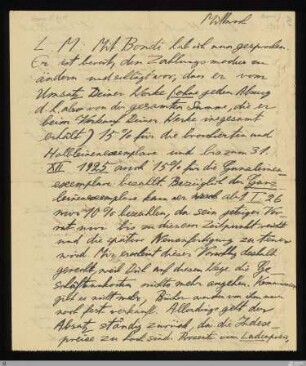 Mittwoch
L. M. Mit Bondi hab ich nun gesprochen.
Er ist bereit, den Zahlungsmodus zu
ändern und schlägt vor, dass er vom
Umsatz Deiner Werke (ohne jeden Abzug
d. h. also von der gesamten Summe, die er
beim Verkauf Deiner Werke insgesamt
erhält) 15 % für die broschierten und
Halbleinenexemplare und bis zum 31.
XII 1925 auch 15 % für die Ganzleinen-
exemplare bezahlt. Bezüglich der Ganz-
leinenexemplare kann er ab 1 I 26
nur 10 % bezahlen, da sein jetziger Vor-
rat nur bis zu diesem Zeitpunkt reicht
und die spätere Neuanfertigung zu teuer
wird. Mir erscheint dieser Vorschlag deshalb
gerecht, weil Dich auf diesem Wege die Ge-
schäftsunkosten nichts mehr angehen.
gibt es nicht mehr, Bücher
noch fest verkauft. Allerdings geht der
Absatz ständig zurück, da die
preise zu hoch sind. Prozente vom Ladenpreis